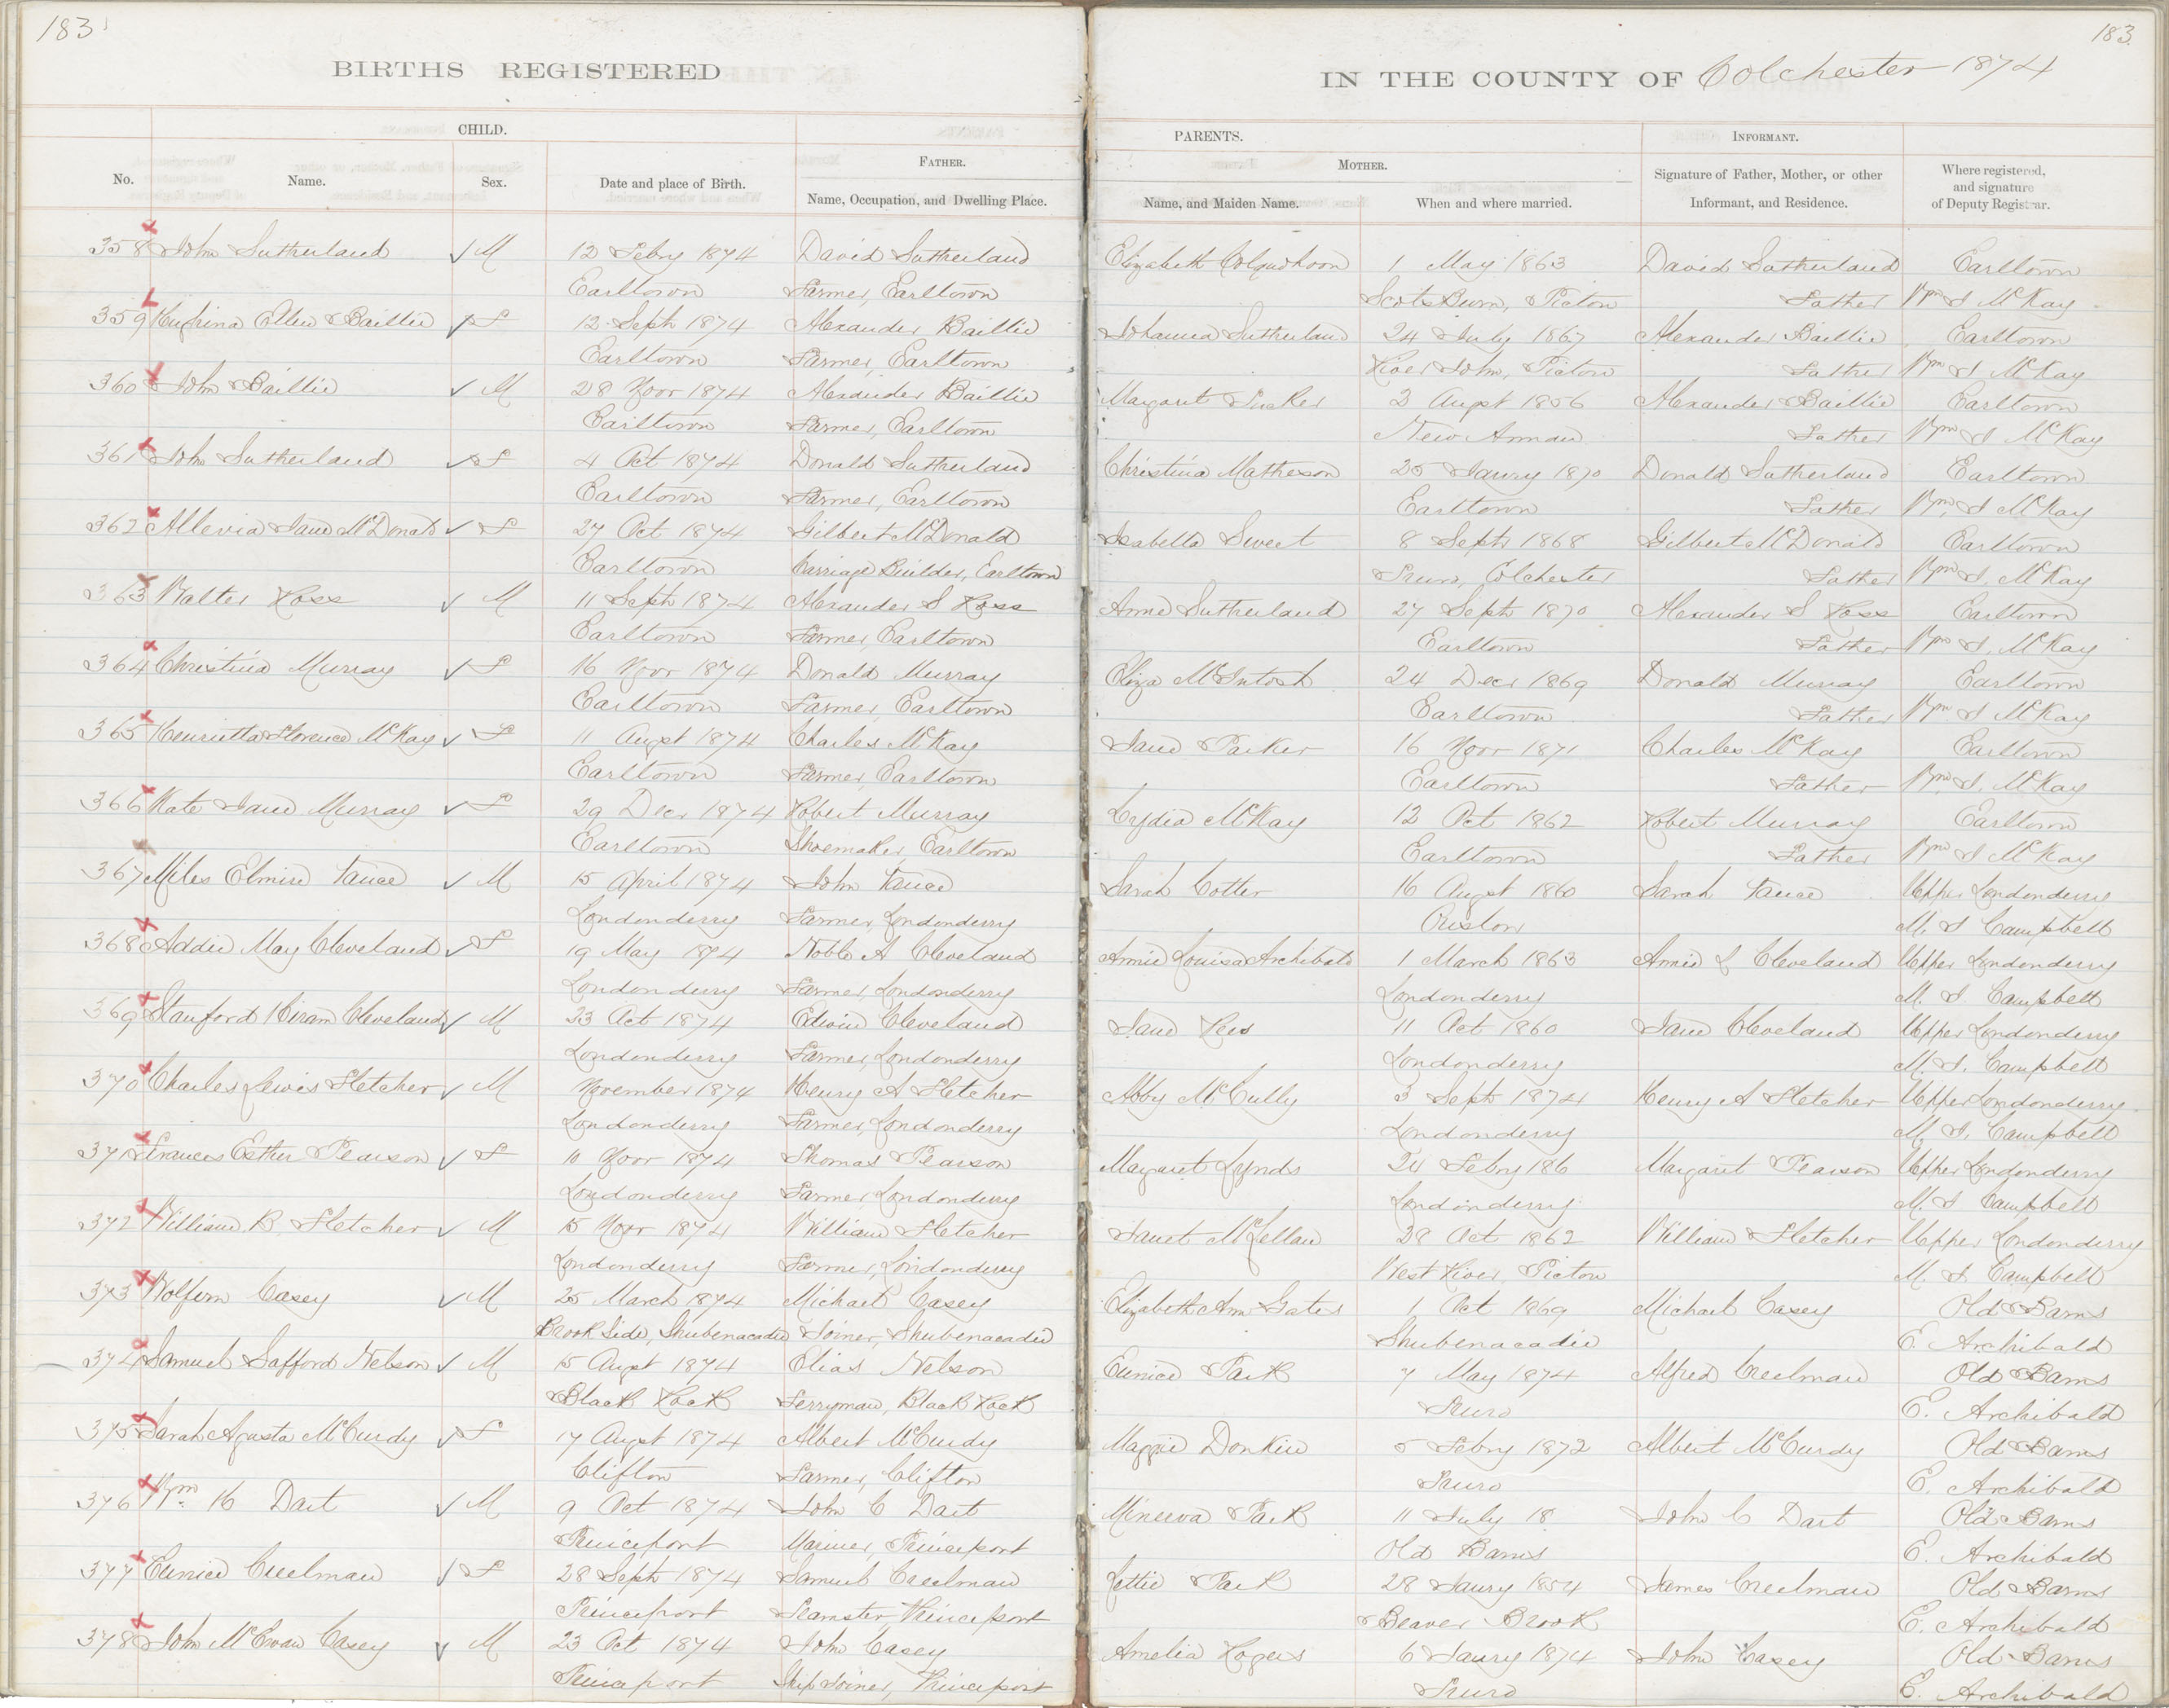 183
183.
BIRTHS REGISTERED
IN THE COUNTY OF Colchester 1874
CHILD.
PARENTS.
INFORMANT.
FATHER.
MOTHER.
No.
Name.
Sex.
Date and place of Birth.
Name, Occupation, and Dwelling Place.
Name, and Maiden Name.
When and where married.
Signature of Father, Mother, or other Informant, and Residence.
Where registered, and signature of Deputy Registrar.
358 John Sutherland M 12 Feby 1874 David Sutherland Elizabeth Colquhoon 1 May 1863 David Sutherland Earltown
Earltown Farmer, Earltown Scots Burn, Pictou Father Wm I McKay
359 Hughina Ellen Baillie F 12 Sept 1874 Alexander Baillie Johanna Sutherland 24 July 1867 Alexander Baillie Earltown
Earltown Farmer, Earltown River John, Pictou Father Wm I McKay
360 John Baillie M 28 Novr 1874 Alexander Baillie Margaret 2 Augst 1856 Alexander Baillie Earltown
Earltown Farmer, Earltown New Annan Father Wm I McKay
361 John Sutherland F 4 Oct 1874 Donald Sutherland Christina Matheson 25 Janry 1870 Donald Sutherland Earltown
Earltown Farmer, Earltown Earltown Father Wm I McKay
362 Allevia Jane McDonald F 27 Oct 1874 Gilbert McDonald Isabella Sweet 8 Sept 1868 Gilbert McDonald Earltown
Earltown Carriage Builder, Earltown Truro, Colchester Father Wm I. McKay
363 Walter Ross M 11 Sept 1874 Alexander S Ross Anne Sutherland 27 Sept 1870 Alexander S Ross Earltown
Earltown Farmer, Earltown Earltown Father Wm I. McKay
364 Christina Murray F 16 Novr 1874 Donald Murray Eliza McIntosh 24 Decr 1869 Donald Murray Earltown
Earltown Farmer, Earltown Earltown Father Wm I McKay
365 Henrietta Florence McKay F 11 Augst 1874 Charles McKay Jane Parker 16 Novr 1871 Charles McKay Earltown
Earltown Farmer, Earltown Earltown Father Wm I. McKay
366 Kate Jane Murray F 29 Decr 1874 Robert Murray Lydia McKay 12 Oct 1862 Robert Murray Earltown
Earltown Shoemaker, Earltown Earltown Father Wm I McKay
367 Miles Elmire Vance M 15 April 1874 John Vance Sarah Cotter 16 Augst 1860 Sarah Vance Upper Londonderry
Londonderry Farmer, Londonderry Onslow M. I Campbell
368 Addie May Cleveland F 19 May 1874 Noble A Cleveland Annie Louisa Archibald 1 March 1863 Annie L Cleveland Upper Londonderry
Londonderry Farmer, Londonderry Londonderry M. I Campbell
369 Stanford Hiram Cleveland M 23 Oct 1874 Edwin Cleveland Jane 11 Oct 1860 Jane Cleveland Upper Londonderry
Londonderry Farmer, Londonderry Londonderry M. I. Campbell
370 Charles Lewis Fletcher M November 1874 Henry A Fletcher Abby McCully 3 Sept 1874 Henry A Fletcher Upper Londonderry
Londonderry Farmer, Londonderry Londonderry M. I. Campbell
371 Frances Esther Pearson F 10 Novr 1874 Thomas Pearson Margaret Lynds 24 Febry 186 Margaret Pearson Upper Londonderry
Londonderry Farmer, Londonderry Londonderry M. I Campbell
372 William B Fletcher M 15 Novr 1874 William Fletcher Janet McLellan 28 Oct 1862 William Fletcher Upper Londonderry
Londonderry Farmer, Londonderry West River, Pictou M. I. Campbell
373 Wolfern Casey M 25 March 1874 Michael Casey Elizabeth Ann Gates 1 Oct 1869 Michael Casey Old Barns
Brook Side, Shubenacadie Joiner, Shubenacadie Shubenacadie E. Archibald
374 Samuel Safford Nelson M 15 Augst 1874 Elias Nelson Eunice Park 7 May 1874 Alfred Creelman Old Barns
Black Rock Ferryman, Black Rock Truro E. Archibald
375 Sarah Agusta McCurdy F 17 Augst 1874 Albert McCurdy Maggie Donkin 5 Febry 1872 Albert McCurdy Old Barns
Clifton Farmer, Clifton Truro E. Archibald
376 Wm H Dart M 9 Oct 1874 John C Dart Minerva Park 11 July 18 John C Dart Old Barns
Princeport Mariner, Princeport Old Barns E. Archibald
377 Eunice Creelman F 28 Sept 1874 Samuel Creelman Lettie Park 28 Janry 1854 James Creelman Old Barns
Princeport Teamster, Princeport Beaver Brook E. Archibald
378 John McEwan Casey M 23 Oct 1874 John Casey Amelia Rogers 6 Janry 1874 John Casey Old Barns
Princeport Ship Joiner, Princeport Truro E. Archibald